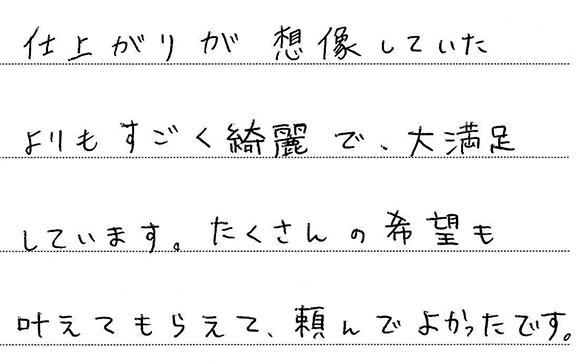 仕上がりが想像していた
よりもすごく綺麗で、大満足
しています。たくさんの希望も
叶えてもらえて、頼んでよかったです。